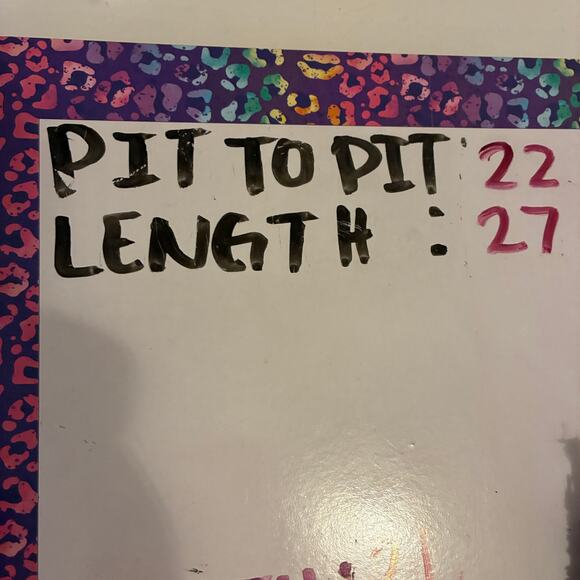 PIT TO PIT: 22
LENGTH : 27